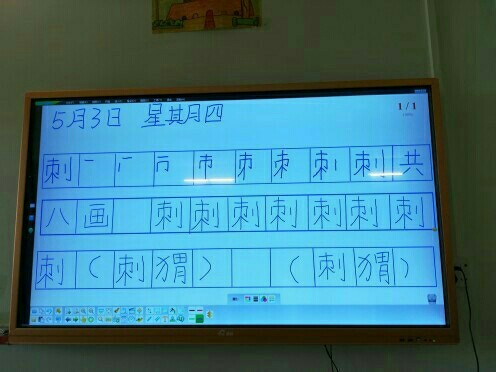 1/1
5月3日 星期四
刺 一 厂 㔾 市 束 束 刺 刺 共
八 画 刺 刺 刺 刺 刺 刺 刺
刺 ( 刺 猬 ) ( 刺 猬 )